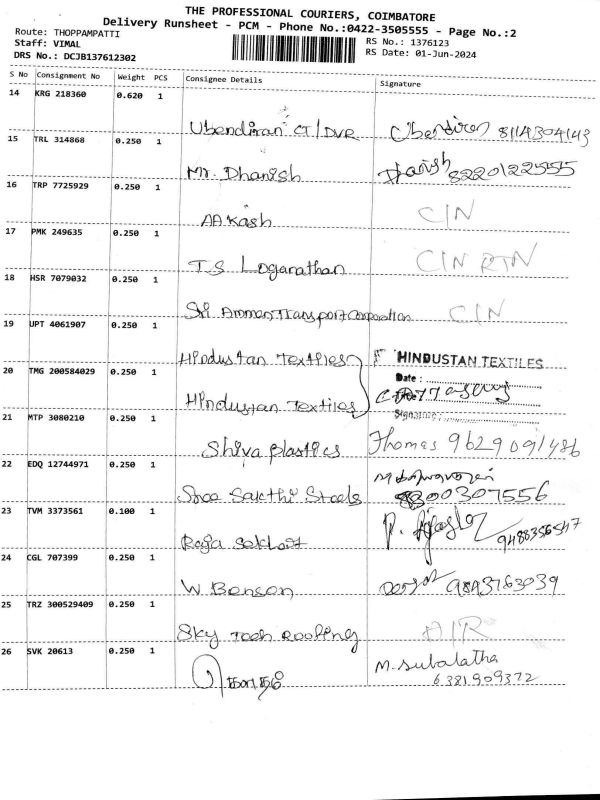 THE PROFESSIONAL COURIERS, COIMBATORE
Delivery Runsheet - PCM - Phone No.:0422-3505555 - Page No.:2
Route: THOPPAMPATTI
Staff: VIMAL
DRS No.: DCJB137612302
RS No.: 1376123
RS Date: 01-Jun-2024
S No Consignment No Weight PCS Consignee Details Signature
14 KRG 218360 0.620 1
Ubendiran CT/DVR Ubendiran 8114304143
15 TRL 314868 0.250 1
Mr. Dhanish Dhanish 8220122555
16 TRP 7725929 0.250 1
AAkash CIN
17 PMK 249635 0.250 1
T.S Loganathan CIN RTN
18 HSR 7079032 0.250 1
Sri Amman Transport Corporation CIN
19 UPT 4061907 0.250 1
Hindustan Textiles HINDUSTAN TEXTILES
Date :
20 TMG 200584029 0.250 1
Hindustan Textiles
Signature:
21 MTP 3080210 0.250 1
Shiva plastics Thomas 9629091486
22 EDQ 12744971 0.250 1
Shree Sakthi Steels 300307556
23 TVM 3373561 0.100 1
Raja P. 9488356547
24 CGL 707399 0.250 1
W. Benson 9843763039
25 TRZ 300529409 0.250 1
Sky Tech Roofing D/R
26 SVK 20613 0.250 1
M. Subalatha
6381909372